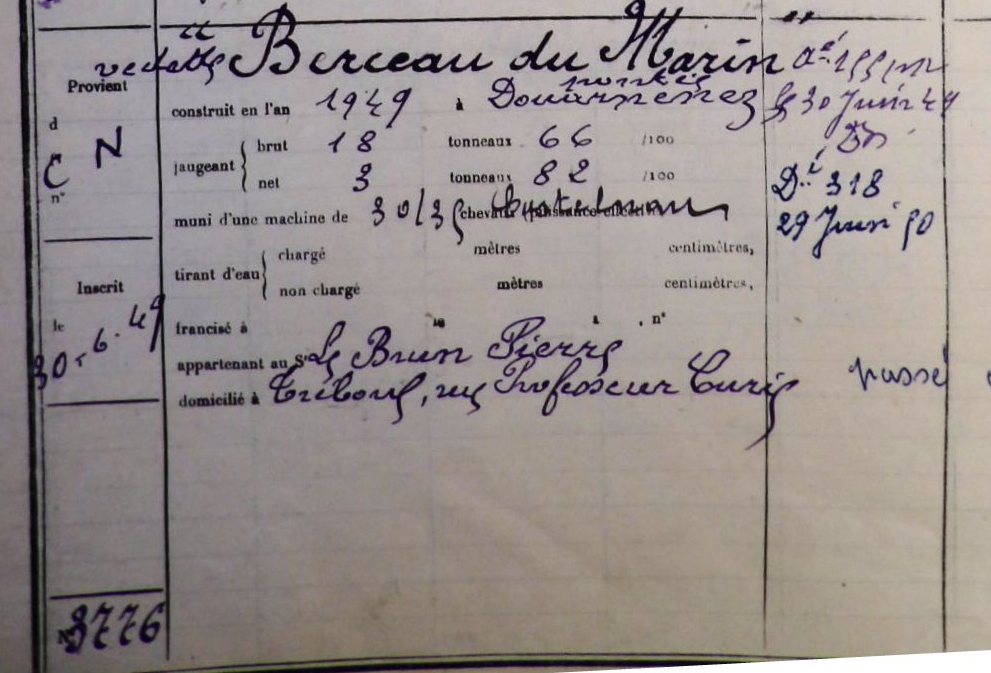 "
vedette "Berceau du Marin"
pontée
Provient
d
C N
n°
Inscrit
le
30-6-49
N° 3776
construit en l'an 1949 à Douarnenez
jaugeant brut 18 tonneaux 66 /100
net 3 tonneaux 82 /100
muni d'une machine de 30/35 chevaux
tirant d'eau chargé mètres centimètres,
non chargé mètres centimètres,
francisé à le , n°
appartenant au Sr Le Brun Pierre
domicilié à Tréboul, rue Professeur Curie
Ae
le 30 Juin 49
Dé 318
29 Juin 50
passé